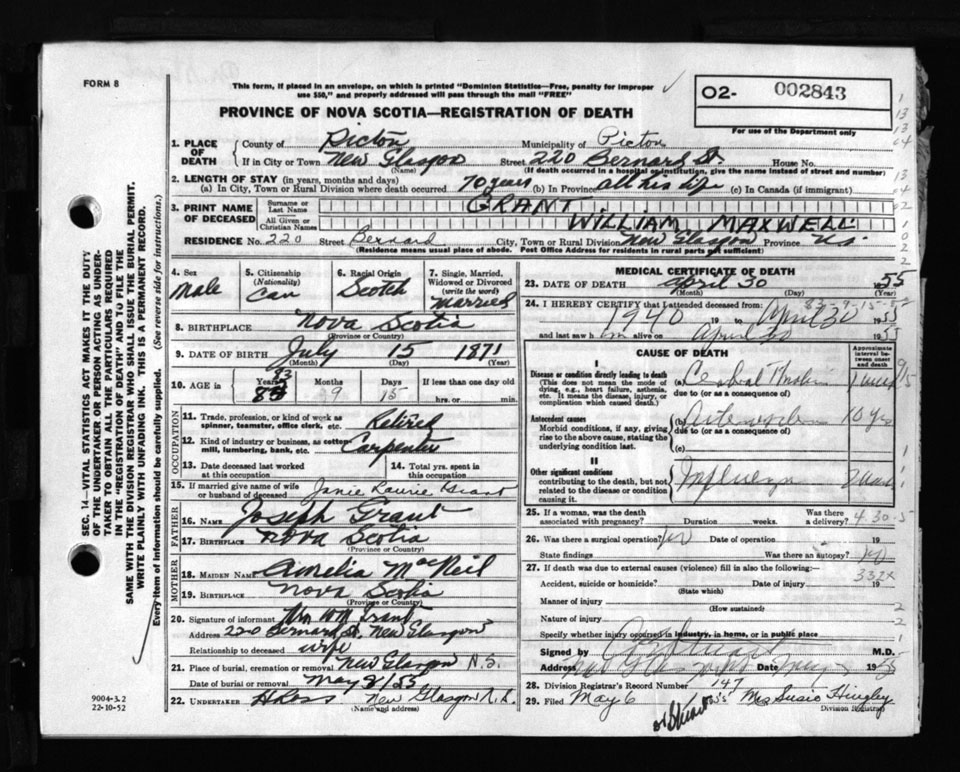 FORM 8
This form, if placed in an envelope, on which is printed "Dominion Statistics—Free, penalty for improper
use $50," and properly addressed will pass through the mail "FREE"
O2- 002843
For use of the Department only
PROVINCE OF NOVA SCOTIA—REGISTRATION OF DEATH
1. PLACE OF DEATH County of Pictou Municipality of Pictou
If in City or Town New Glasgow Street 220 Bernard St. House No.
(Name) (If death occurred in a hospital or institution, give the name instead of street and number)
2. LENGTH OF STAY (in years, months and days)
(a) In City, Town or Rural Division where death occurred 70 years (b) In Province all his life (c) In Canada (if immigrant)
3. PRINT NAME OF DECEASED Surname or Last Name GRANT
All Given or Christian Names WILLIAM MAXWELL
RESIDENCE No. 220 Street Bernard City, Town or Rural Division New Glasgow Province N.S.
(Residence means usual place of abode. Post Office Address for residents in rural parts not sufficient)
4. Sex Male
5. Citizenship (Nationality) Can
6. Racial Origin Scotch
7. Single, Married, Widowed or Divorced (write the word) Married
8. BIRTHPLACE Nova Scotia
(Province or Country)
9. DATE OF BIRTH July 15 1871
(Month) (Day) (Year)
10. AGE in Years 83 Months 9 Days 15 If less than one day
hrs. or min.
OCCUPATION
11. Trade, profession, or kind of work as spinner, teamster, office clerk, etc. Retired
12. Kind of industry or business, as cotton mill, lumbering, bank, etc. Carpenter
13. Date deceased last worked at this occupation
14. Total yrs. spent in this occupation
15. If married give name of wife or husband of deceased Janie Laurie Grant
FATHER
16. NAME Joseph Grant
17. BIRTHPLACE Nova Scotia
(Province or Country)
MOTHER
18. MAIDEN NAME Amelia MacNeil
19. BIRTHPLACE Nova Scotia
(Province or Country)
20. Signature of informant Mrs Wm Grant
Address 220 Bernard St. New Glasgow
Relationship to deceased wife
21. Place of burial, cremation or removal New Glasgow N.S.
Date of burial or removal May 2/55
22. UNDERTAKER H Ross New Glasgow N.S.
(Name and address)
MEDICAL CERTIFICATE OF DEATH
23. DATE OF DEATH April 30 1955
(Month) (Day) (Year)
83-9-15
24. I HEREBY CERTIFY that I attended deceased from:
1940 19 to April 30 1955
and last saw him alive on April 30 1955
CAUSE OF DEATH
Approximate interval between onset and death
I
Disease or condition directly leading to death
(This does not mean the mode of dying, e.g., heart failure, asthenia, etc. It means the disease, injury, or complication which caused death.)
(a) Cerebral
due to (or as a consequence of)
Antecedent causes
Morbid conditions, if any, giving rise to the above cause, stating the underlying condition last.
(b) 10 yrs
due to (or as a consequence of)
(c)
II
Other significant conditions
contributing to the death, but not related to the disease or condition causing it.
Influenza
25. If a woman, was the death associated with pregnancy? Duration weeks. Was there a delivery? 4-30-5
26. Was there a surgical operation? no Date of operation 19
State findings Was there an autopsy? no
27. If death was due to external causes (violence) fill in also the following: 332x
Accident, suicide or homicide? Date of injury 19
(State which)
Manner of injury
(How sustained)
Nature of injury
Specify whether injury occurred in industry, in home, or in public place
Signed by M.D.
Address Date 1955
28. Division Registrar's Record Number 147
29. Filed May 6 1955 Mrs Susie Hingley
Division Registrar
SEC. 14—VITAL STATISTICS ACT MAKES IT THE DUTY
OF THE UNDERTAKER OR PERSON ACTING AS UNDER-
TAKER TO OBTAIN ALL THE PARTICULARS REQUIRED
IN THE "REGISTRATION OF DEATH" AND TO FILE THE
SAME WITH THE DIVISION REGISTRAR WHO SHALL ISSUE THE BURIAL PERMIT.
WRITE PLAINLY WITH UNFADING INK. THIS IS A PERMANENT RECORD.
Every item of Information should be carefully supplied. (See reverse side for instructions.)
9004-3.2
22-10-52